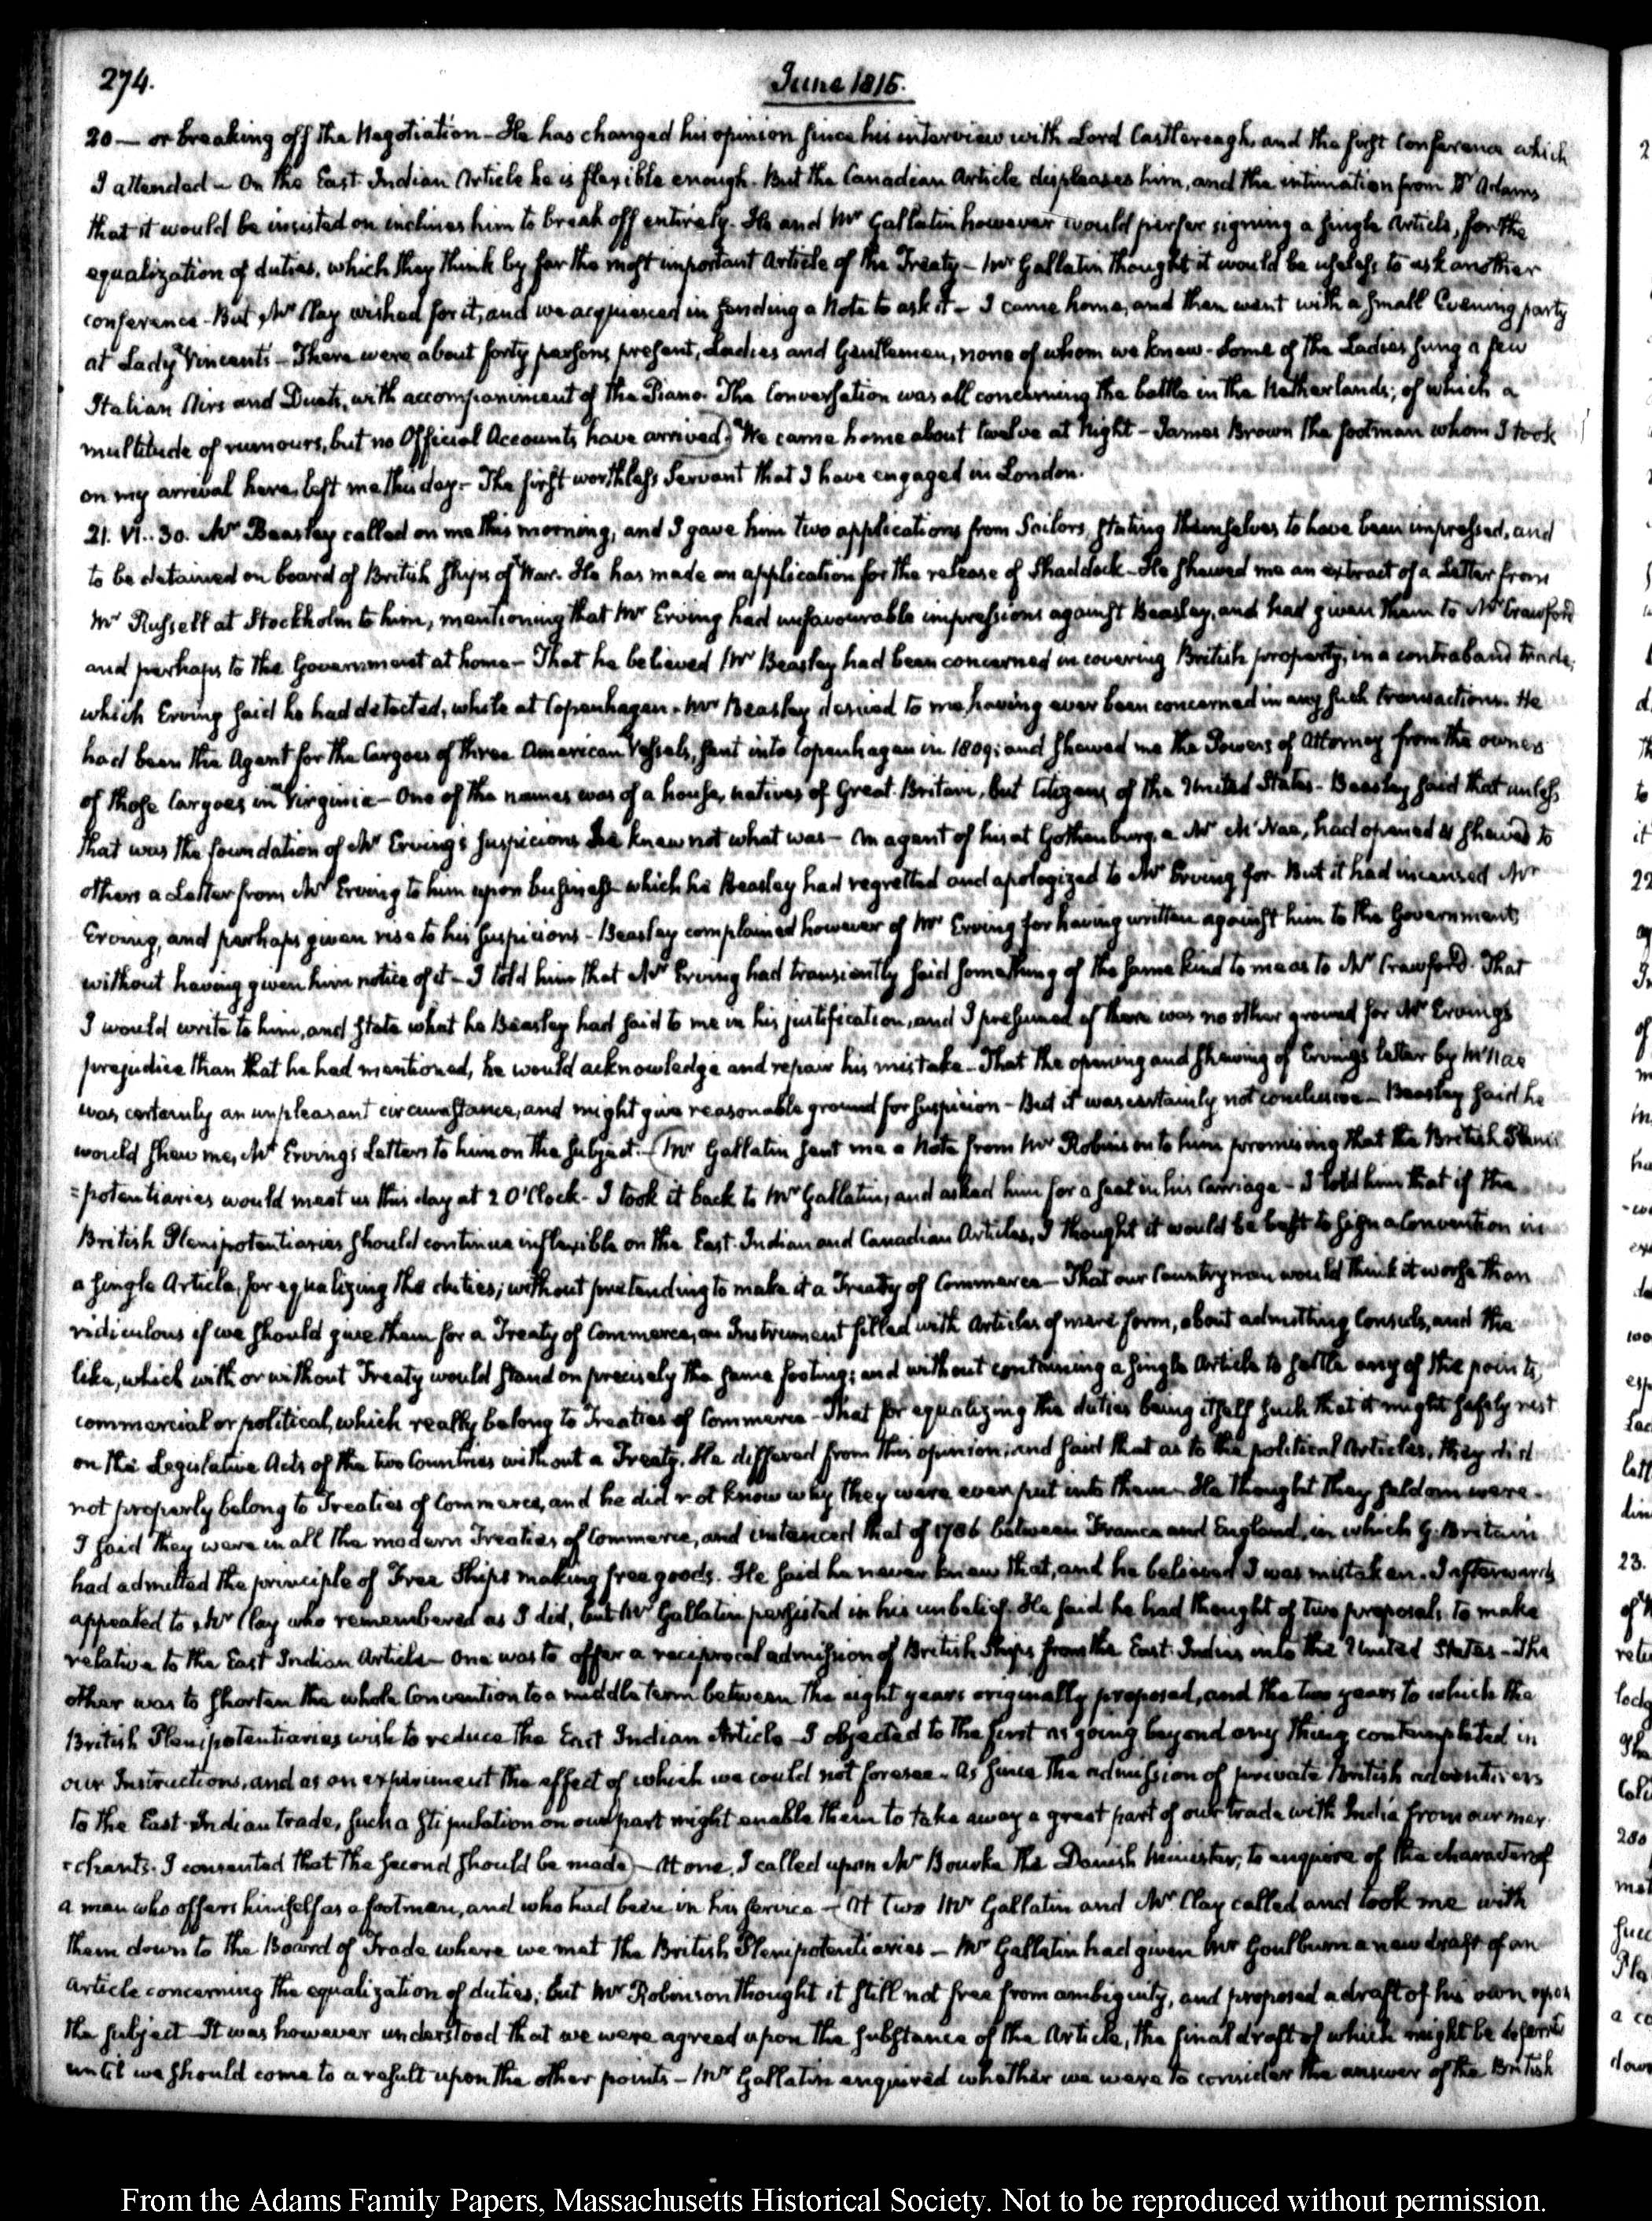 274.
June 1815.
20 — or breaking off the Negotiation – He has changed his opinion since his interview with Lord Castlereagh, and the first Conference which
I attended – On the East Indian Article he is flexible enough. But the Canadian Article displeases him, and the intimation from Dr Adams
that it would be insisted on inclines him to break off entirely. He and Mr Gallatin however would prefer signing a single Article, for the
equalization of duties, which they think by far the most important Article of the Treaty – Mr Gallatin thought it would be useless to ask another
conference – But Mr Clay wished for it, and we acquiesced in sending a Note to ask it – I came home, and then went with a small Evening party
at Lady Vincent's – There were about forty persons present, Ladies and Gentlemen, none of whom we knew. Some of the Ladies sung a few
Italian Airs and Duets, with accompaniment of the Piano. The Conversation was all concerning the battle in the Netherlands; of which a
multitude of rumours, but no Official Accounts have arrived.) We came home about twelve at Night – James Brown the footman whom I took
on my arrival here, left me this day – The first worthless Servant that I have engaged in London.
21. VI.. 30. Mr Beasley called on me this morning, and I gave him two applications from Sailors, stating themselves to have been impressed, and
to be detained on board of British Ships of War. He has made an application for the release of Shaddock – He shewed me an extract of a Letter from
Mr Russell at Stockholm to him, mentioning that Mr Erving had unfavourable impressions against Beasley, and had given them to Mr Crawford
and perhaps to the Government at home – That he believed Mr Beasley had been concerned in covering British property, in a contraband trade,
which Erving said he had detected, while at Copenhagen. Mr Beasley denied to me having ever been concerned in any such transactions. He
had been the Agent for the Cargoes of three American Vessels, sent into Copenhagen in 1809; and shewed me the Powers of Attorney from the owners
of those Cargoes in Virginia – One of the names was of a house, natives of Great-Britain, but Citizens of the United States – Beasley said that unless
that was the foundation of Mr Erving's suspicions he knew not what was – An agent of his at Gothenburg, a Mr McNae, had opened & shewed to
others a Letter from Mr Erving to him upon business which he Beasley had regretted and apologized to Mr Erving for. But it had incensed Mr
Erving, and perhaps given rise to his suspicions – Beasley complained however of Mr Erving for having written against him to the Government
without having given him notice of it – I told him that Mr Erving had transiently said something of the same kind to me as to Mr Crawford. That
I would write to him, and state what he Beasley had said to me in his justification, and I presumed if there was no other ground for Mr Erving's
prejudice than that he had mentioned, he would acknowledge and repair his mistake – That the opening and shewing of Erving's letter by McNae
was certainly an unpleasant circumstance, and might give reasonable ground for suspicion – But it was certainly not conclusive – Beasley said he
would shew me, Mr Erving's Letters to him on the subject. – (Mr Gallatin sent me a Note from Mr Robinson to him promising that the British Pleni
=potentiaries would meet us this day at 2 O'Clock – I took it back to Mr Gallatin, and asked him for a seat in his Carriage – I told him that if the
British Plenipotentiaries should continue inflexible on the East-Indian and Canadian Articles, I thought it would be best to sign a Convention in
a single Article, for equalizing the duties; without pretending to make it a Treaty of Commerce – That our Countrymen would think it worse than
ridiculous if we should give them for a Treaty of Commerce, an Instrument filled with Articles of mere form, about admitting Consuls, and the
like, which with or without Treaty would stand on precisely the same footing; and without containing a single Article to settle any of the points,
commercial or political, which really belong to Treaties of Commerce – That for equalizing the duties being itself such that it might safely rest
on the Legislative Acts of the two Countries without a Treaty. He differed from this opinion; and said that as to the political Articles, they did
not properly belong to Treaties of Commerce, and he did not know why they were ever put into them – He thought they seldom were –
I said they were in all the modern Treaties of Commerce, and instanced that of 1786 between France and England, in which G. Britain
had admitted the principle of Free Ships making free goods. He said he never knew that, and he believed I was mistaken. I afterwards
appealed to Mr Clay who remembered as I did, but Mr Gallatin persisted in his unbelief. He said he had thought of two proposals, to make
relative to the East Indian Article – One was to offer a reciprocal admission of British Ships from the East-Indies into the United States – The
other was to shorten the whole Convention to a middle term between the eight years originally proposed, and the two years to which the
British Plenipotentiaries wish to reduce the East Indian Article – I objected to the first as going beyond any thing contemplated in
our Instructions, and as an experiment the effect of which we could not foresee. As since the admission of private British adventurers
to the East-Indian trade, such a stipulation on our part might enable them to take away a great part of our trade with India from our mer
=chants. I consented that the second should be made) – At one, I called upon Mr Bourke the Danish Minister, to enquire of the character of
a man who offers himself as a footman, and who had been in his service – (At two Mr Gallatin and Mr. Clay called and took me with
them down to the Board of Trade where we met the British Plenipotentiaries – Mr Gallatin had given Mr Goulburn a new draft of an
Article concerning the equalization of duties; but Mr Robinson thought it still not free from ambiguity, and proposed a draft of his own upon
the subject – It was however understood that we were agreed upon the substance of the Article, the final draft of which might be deferred
until we should come to a result upon the other points – Mr Gallatin enquired whether we were to consider the answer of the British
From the Adams Family Papers, Massachusetts Historical Society. Not to be reproduced without permission.